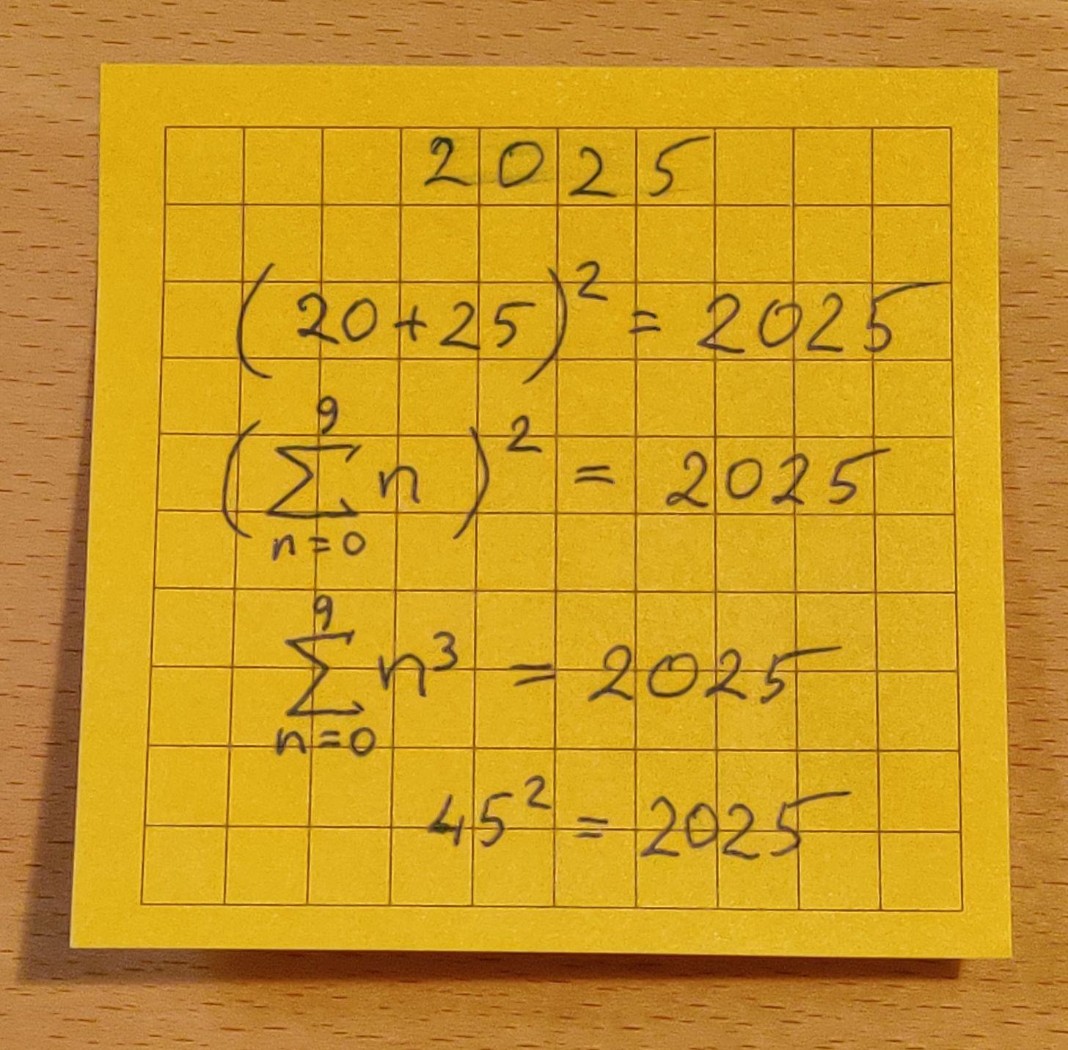 2025
(20+25)² = 2025
(∑_{n=0}^{9} n)² = 2025
∑_{n=0}^{9} n³ = 2025
45² = 2025